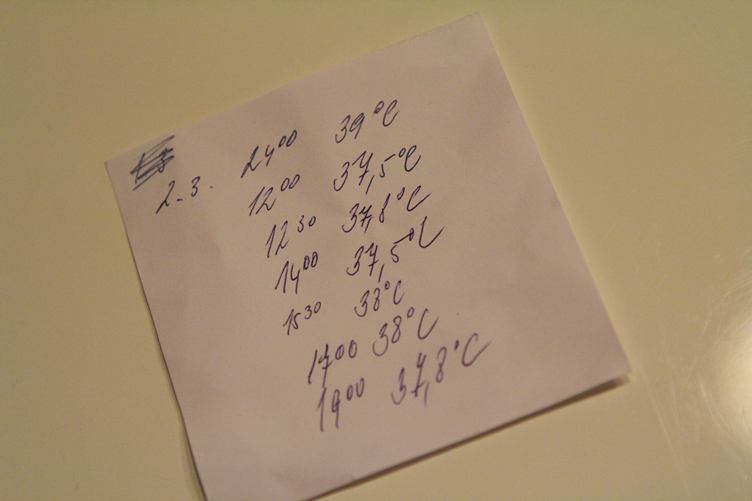 2.3. 2400 39°C
1200 37,5°C
1230 37,8°C
1400 37,5°C
1530 38°C
1700 38°C
1900 37,8°C